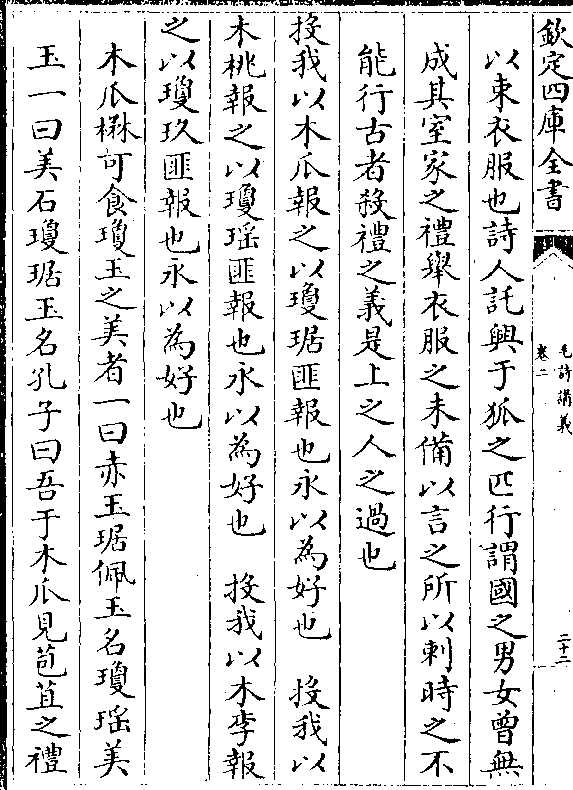 欽定四庫全書
毛詩講義
卷二
二十二
以束衣服也詩人託興于狐之匹行謂國之男女曽無
成其室家之禮舉衣服之未備以言之所以刺時之不
能行古者殺禮之義是上之人之過也
投我以木瓜報之以瓊琚匪報也永以為好也　投我以
木桃報之以瓊瑶匪報也永以為好也　投我以木李報
之以瓊玖匪報也永以為好也
木瓜楙可食瓊玉之美者一曰赤玉琚佩玉名瓊瑶美
玉一曰美石瓊琚玉名孔子曰吾于木瓜見苞苴之禮